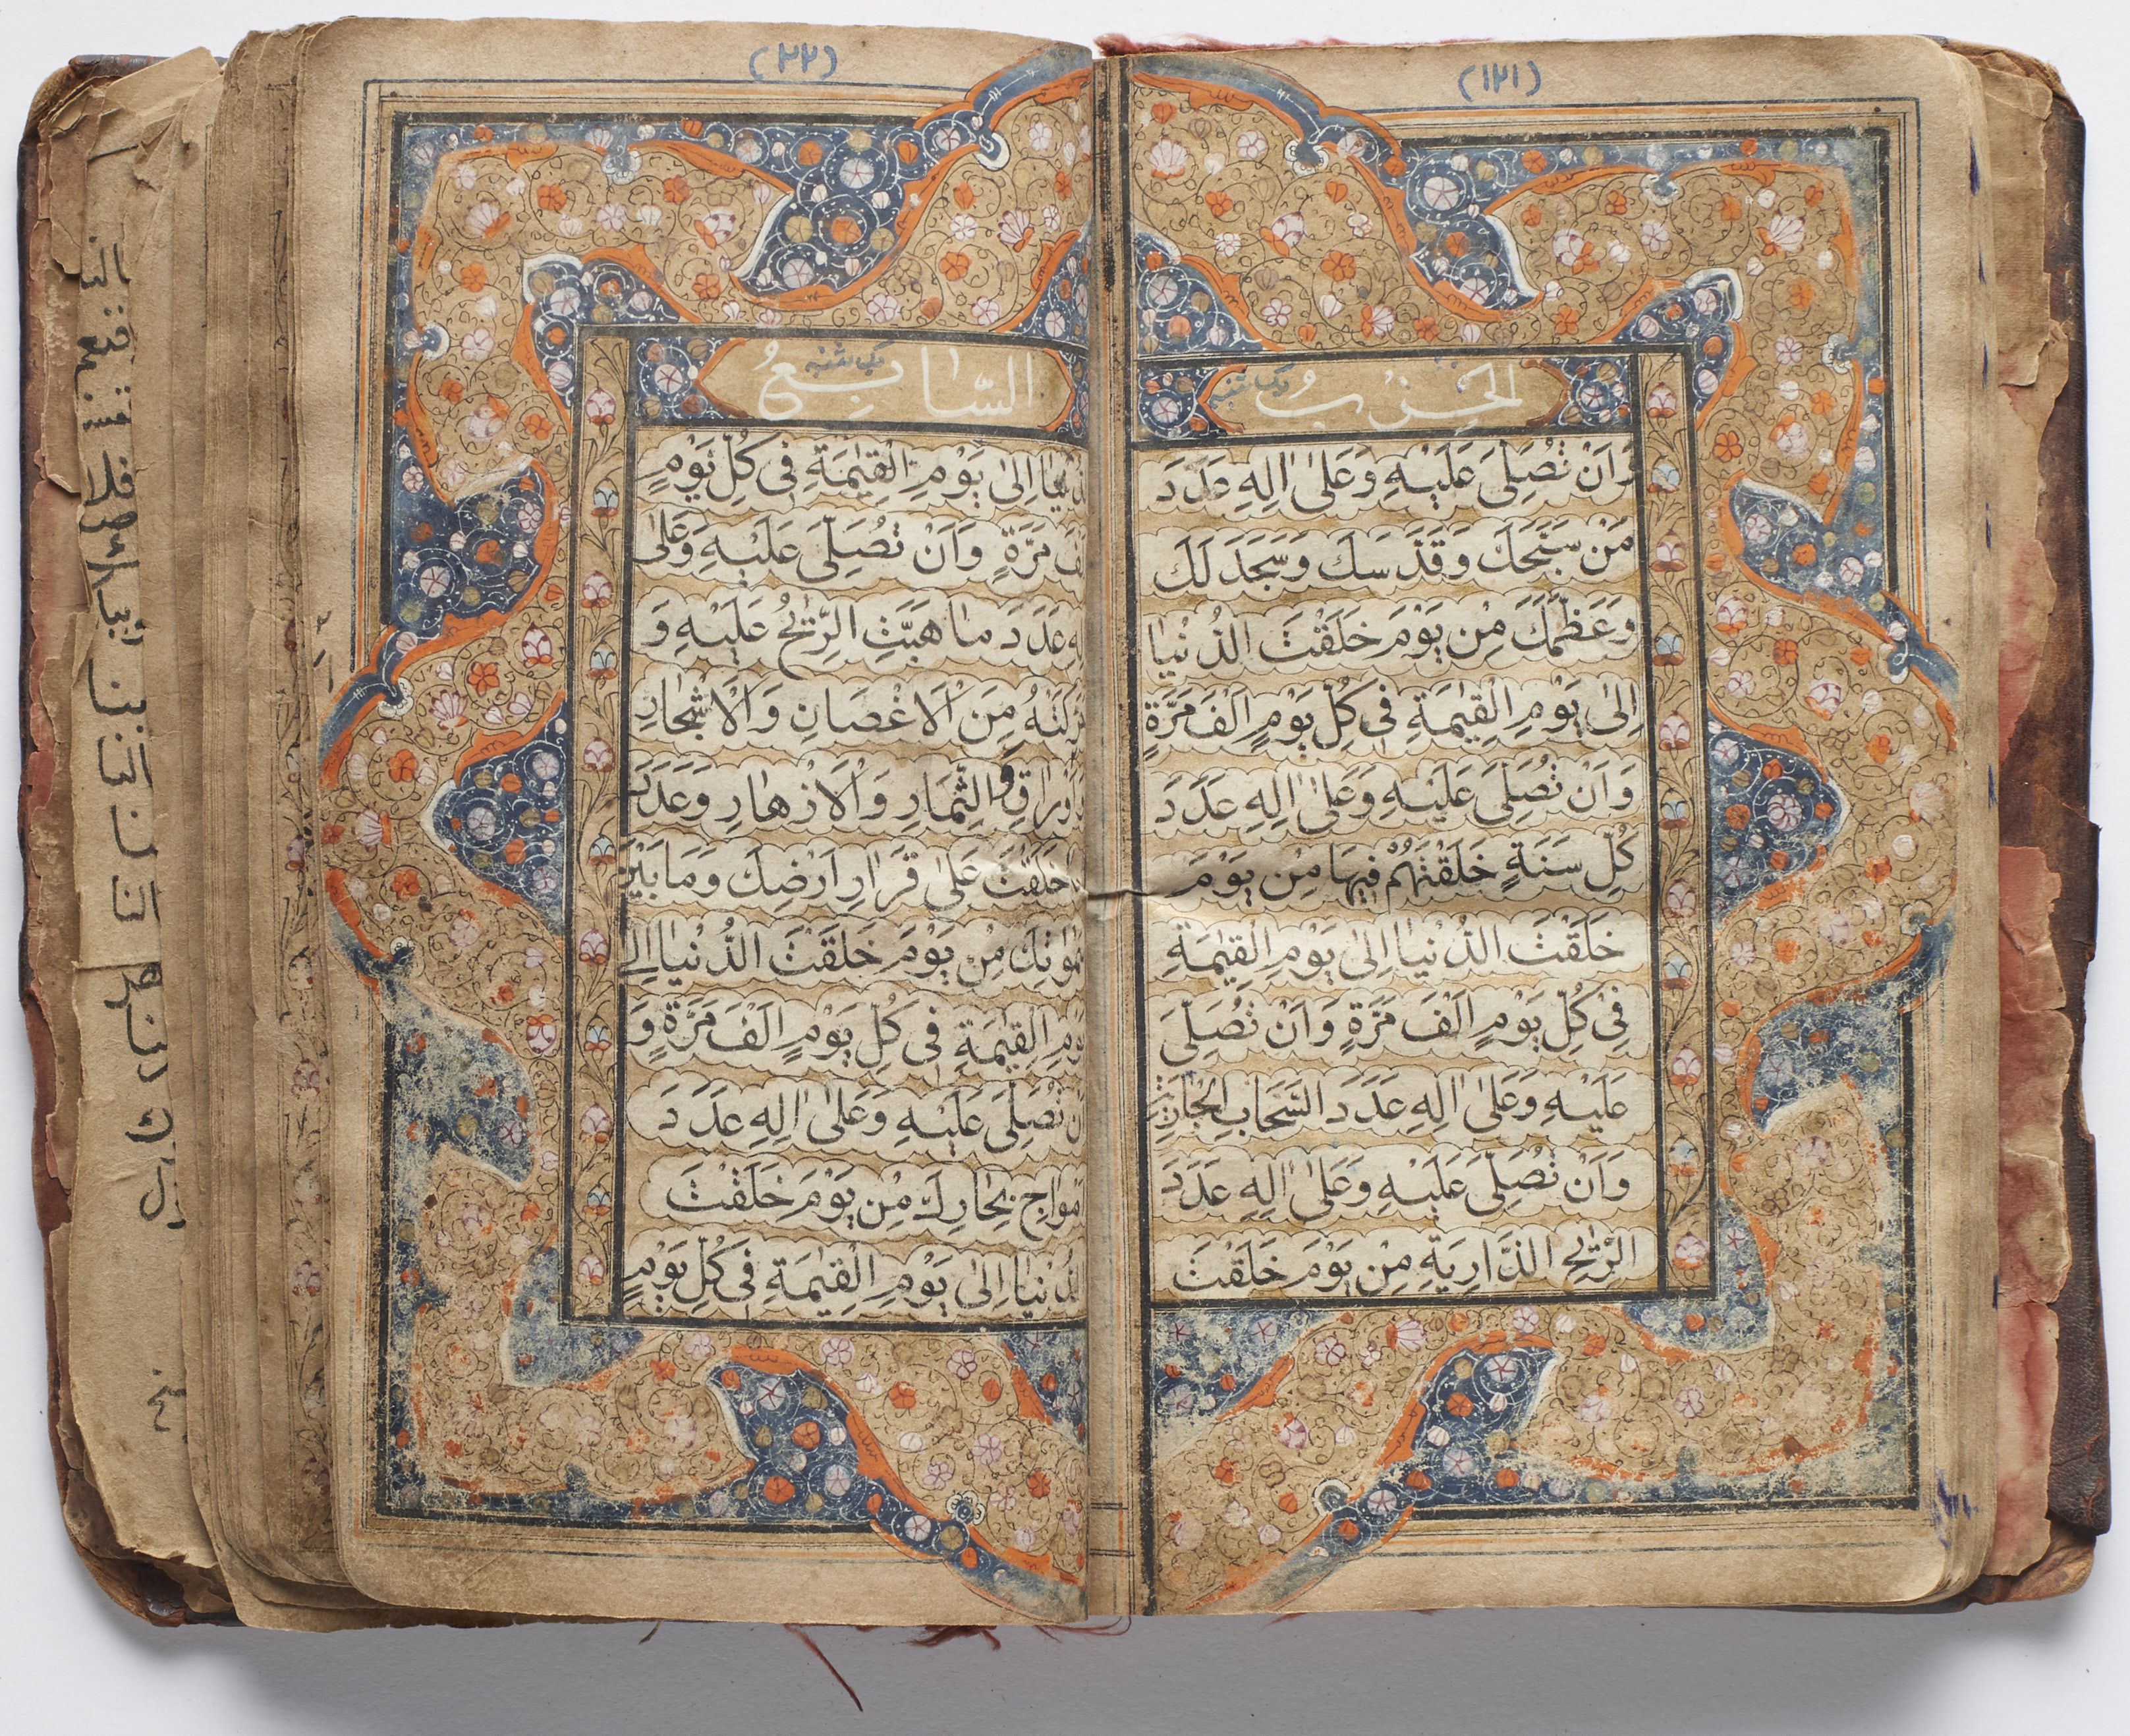 (١٢١)
الحِزْبُ
وَاَنْ تُصَلِّىَ عَلَيْهِ وَعَلىٰ اٰلِهِ عَدَدَ
مَنْ سَبَّحَكَ وَقَدَّسَكَ وَسَجَدَ لَكَ
وَعَظَّمَكَ مِنْ يَوْمَ خَلَقْتَ الدُّنْيٰا
اِلىٰ يَوْمِ الْقِيٰمَةِ فى كُلِّ يَوْمٍ اَلْفَ مَرَّةٍ
وَاَنْ تُصَلِّىَ عَلَيْهِ وَعَلىٰ اٰلِهِ عَدَدَ
كُلِّ سَنَةٍ خَلَقْتَهُمْ فِيهَا مِنْ يَوْمَ
خَلَقْتَ الدُّنْيٰا اِلىٰ يَوْمِ الْقِيٰمَةِ
فِىْ كُلِّ يَوْمٍ اَلْفَ مَرَّةٍ وَاَنْ تُصَلِّىَ
عَلَيْهِ وَعَلىٰ اٰلِهِ عَدَدَ السَّحَابِ الْجٰارِيَةِ
وَاَنْ تُصَلِّىَ عَلَيْهِ وَعَلىٰ اٰلِهِ عَدَدَ
الرِّيٰحِ الذَّارِيَةِ مِنْ يَوْمَ خَلَقْتَ
(٢٢)
السّٰابِعُ
اِلىٰ يَوْمِ الْقِيٰمَةِ فى كُلِّ يَوْمٍ
مَرَّةٍ وَاَنْ تُصَلِّىَ عَلَيْهِ وَعَلىٰ
عَدَدَ مٰا هَبَّتِ الرِّيٰحُ عَلَيْهِ وَ
مِنَ الْاَغْصَانِ وَالْاَشْجٰارِ
وَالثِّمَارِ وَالْاَزْهٰارِ وَعَدَدَ
خَلَقْتَ عَلىٰ قَرٰارِ اَرْضِكَ وَمَا بَيْنَ
مِنْ يَوْمَ خَلَقْتَ الدُّنْيٰا اِلىٰ
الْقِيٰمَةِ فى كُلِّ يَوْمٍ اَلْفَ مَرَّةٍ وَ
تُصَلِّىَ عَلَيْهِ وَعَلىٰ اٰلِهِ عَدَدَ
بِحٰارِكَ مِنْ يَوْمَ خَلَقْتَ
اِلىٰ يَوْمِ الْقِيٰمَةِ فى كُلِّ يَوْمٍ